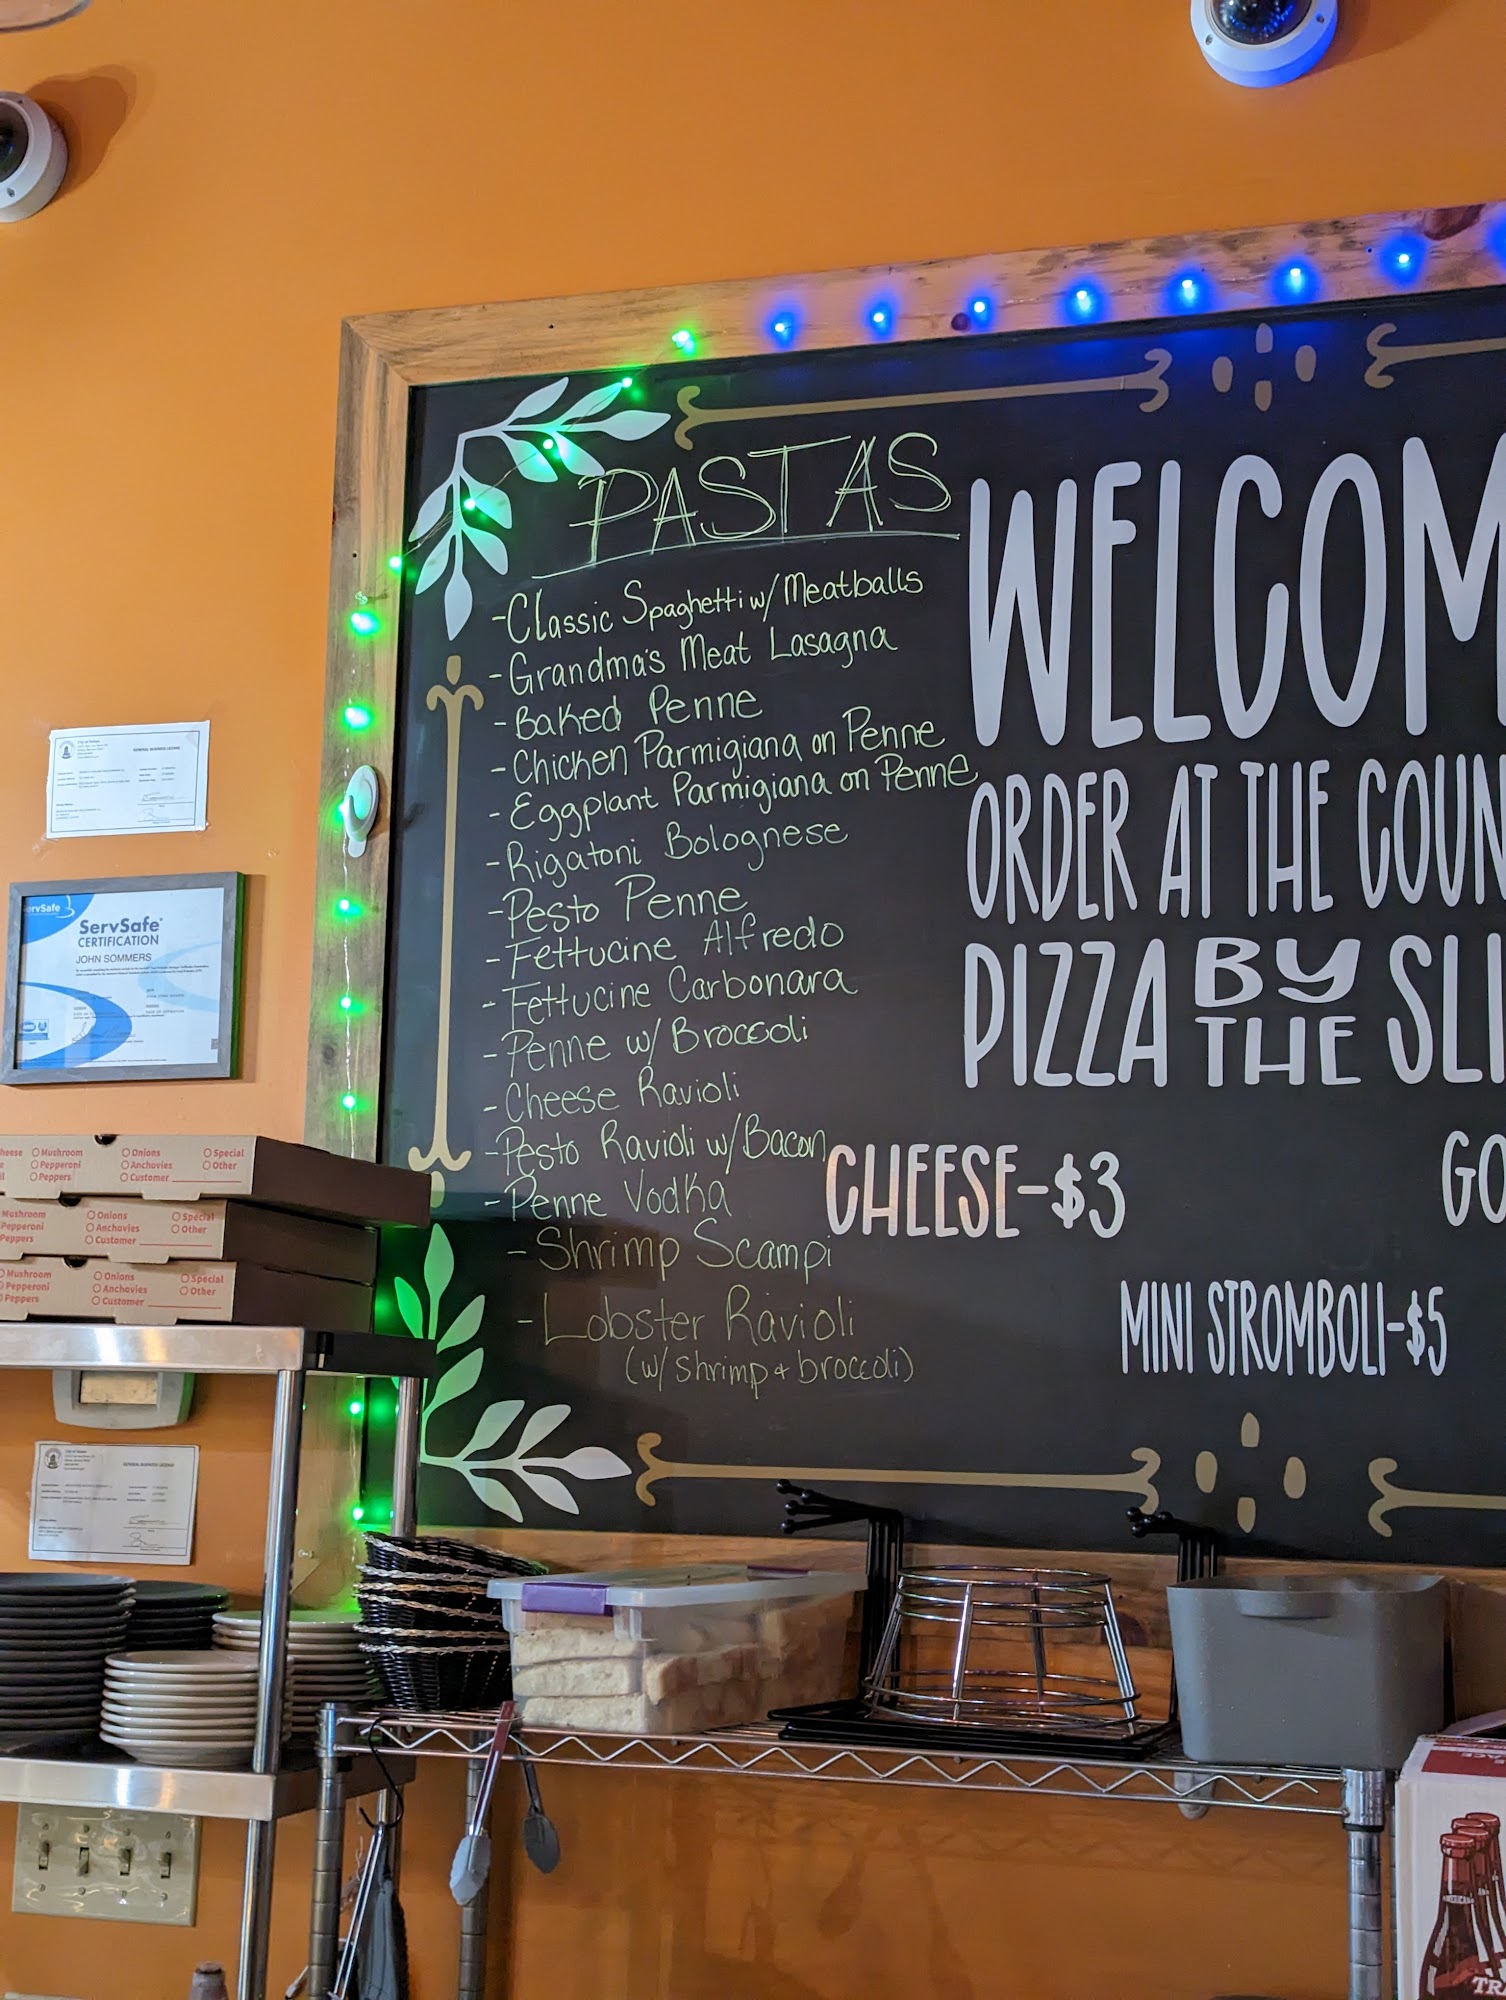 PASTAS
-Classic Spaghetti w/ Meatballs
-Grandma's Meat Lasagna
-Baked Penne
-Chicken Parmigiana on Penne
-Eggplant Parmigiana on Penne
-Rigatoni Bolognese
-Pesto Penne
-Fettucine Alfredo
-Fettucine Carbonara
-Penne w/ Broccoli
-Cheese Ravioli
-Pesto Ravioli w/ Bacon
-Penne Vodka
-Shrimp Scampi
-Lobster Ravioli
(w/ shrimp + broccoli)
WELCOM
ORDER AT THE COUN
PIZZA BY THE SLI
CHEESE-$3
GO
MINI STROMBOLI-$5
GENERAL BUSINESS LICENSE
ervSafe
ServSafe®
CERTIFICATION
JOHN SOMMERS
heese Mushroom Onions Special
Pepperoni Anchovies Other
Peppers Customer
Mushroom Onions Special
Pepperoni Anchovies Other
Peppers Customer
Mushroom Onions Special
Pepperoni Anchovies Other
Peppers Customer
GENERAL BUSINESS LICENSE
TR